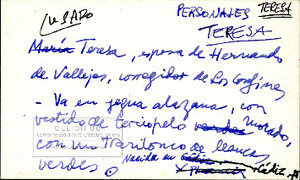 USADO
PERSONAJES
TERESA
TERESA
María Teresa, esposa de Hernando
de Vallejos, corregidor de Los Confines
- Va en yegua alazana, con
vestido de terciopelo verde morado,
con un tran de llamas
verdes. Nacida en Cádiz.